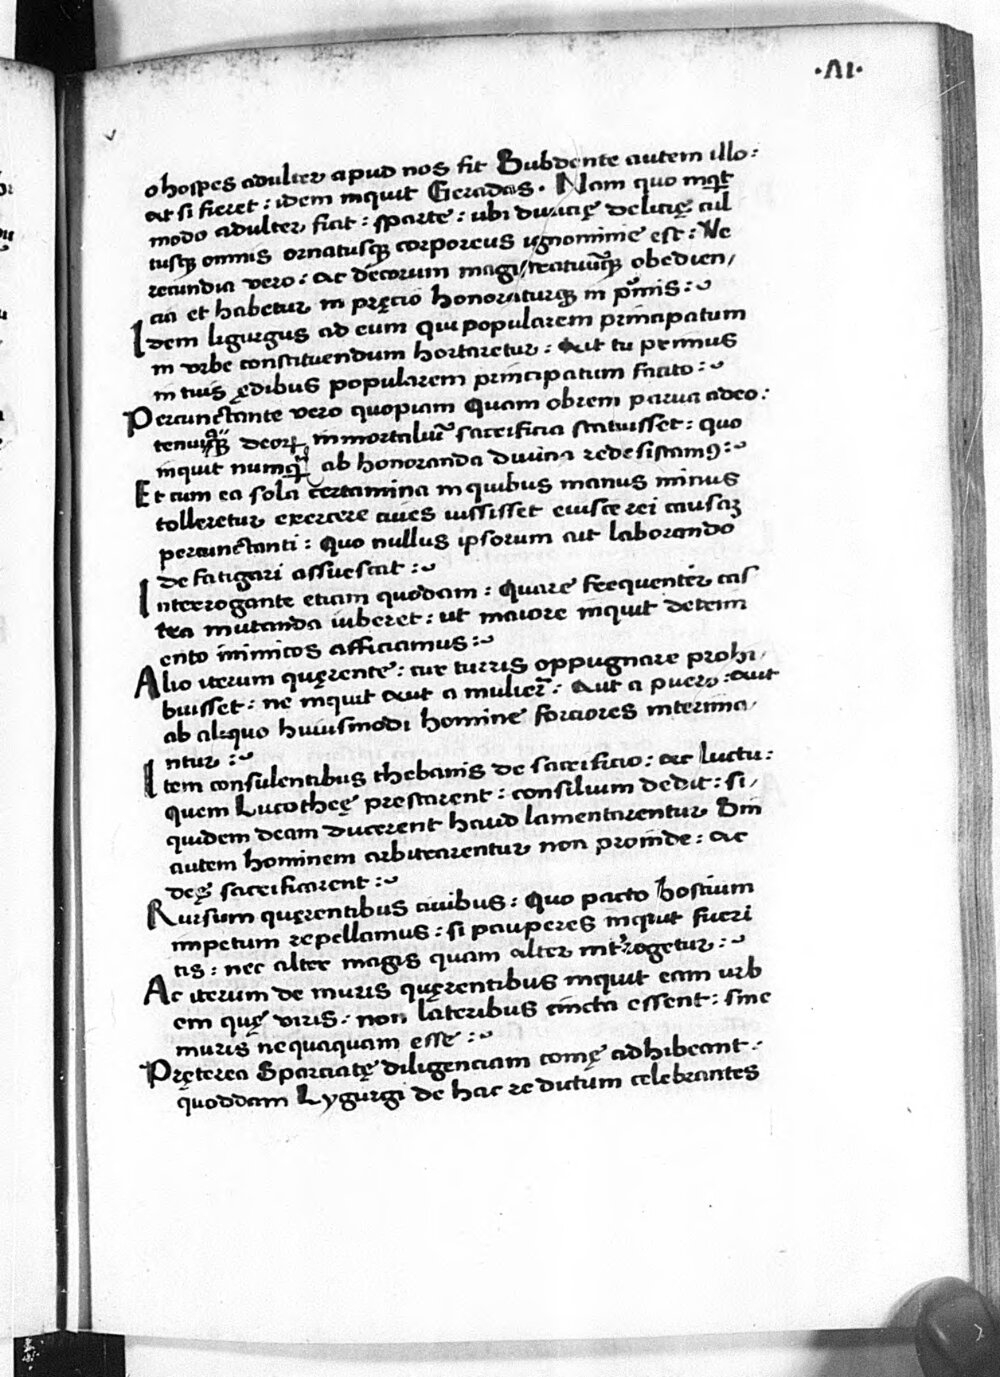 ·VI·
o hospes adulter apud nos fit Subdente autem illo:
at si fieret: idem inquit Geradas. Nam quo inq̄t
modo adulter fiat: sparte: ubi diuicię delicię cul
tusq; omnis ornatusq; corporeus ignominie est: Ve
recundia vero: ac decorum magistratuūq; obedien/
cia et habetur in pręcio honoraturq; in p̄mis:
Idem ligurgus ad eum qui popularem principatum
in vrbe constituendum hortaretur: Ait tu primus
in tuis ędibus popularem principatum facito:
Percunctante vero quopiam Quam obrem parua adeo:
tenuiaq; deorꝝ inmortaliū sacrificia statuisset: quo
inquit numq̄ ab honoranda diuina re desistamꝰ:
Et cum ea sola certamina in quibus manus minus
tolleretur exercere ciues iussisset eiusce rei causaꝫ
percunctanti: Quo nullus ipsorum ait laborando
de fatigari assuescat:
Interrogante etiam quodam: Quare frequenter cas
tra mutanda iuberet: ut maiore inquit detrim
ento inimicos afficiamus:
Alio iterum quęrente: cur turris oppugnare prohi/
buisset: ne inquit aut a mulier̄: Aut a puero: aut
ab aliquo huiusmodi homine forciores interima/
ntur:
Item consulentibus thebanis de sacrificio: ac luctu:
quem Lucotheę prestarent: consilium dedit: si/
quidem deam ducerent haud lamentarentur Sin
autem hominem arbitrarentur non proinde: ac
deę sacrificarent:
Rursum quęrentibus ciuibus: Quo pacto hostium
impetum repellamus: si pauperes inquit fueri
tis: nec alter magis quam alter int̄rogetur:
Ac iterum de muris quęrentibus inquit eam urb
em quę viris: non lateribus cincta essent: sine
muris nequaquam esse:
Pręterea Sparciatę diligenciam comę adhibeant:
quoddam Lygurgi de hac re dictum celebrantes